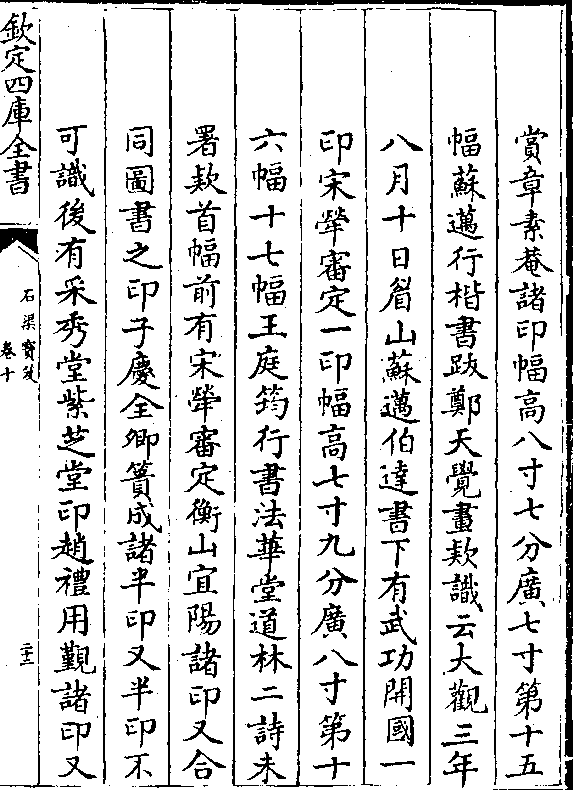 賞章素菴諸印幅高八寸七分廣七寸第十五
幅蘇邁行楷書跋鄭天覺畫欵識云大觀三年
八月十日眉山蘇邁伯達書下有武功開國一
印宋犖審定一印幅高七寸九分廣八寸第十
六幅十七幅王庭筠行書法華堂道林二詩未
署欵首幅前有宋犖審定衡山宜陽諸印又合
同圖書之印子慶全卿簣成諸半印又半印不
可識後有采秀堂紫芝堂印趙禮用觀諸印又
欽定四庫全書
石渠寶笈
卷十
二十三